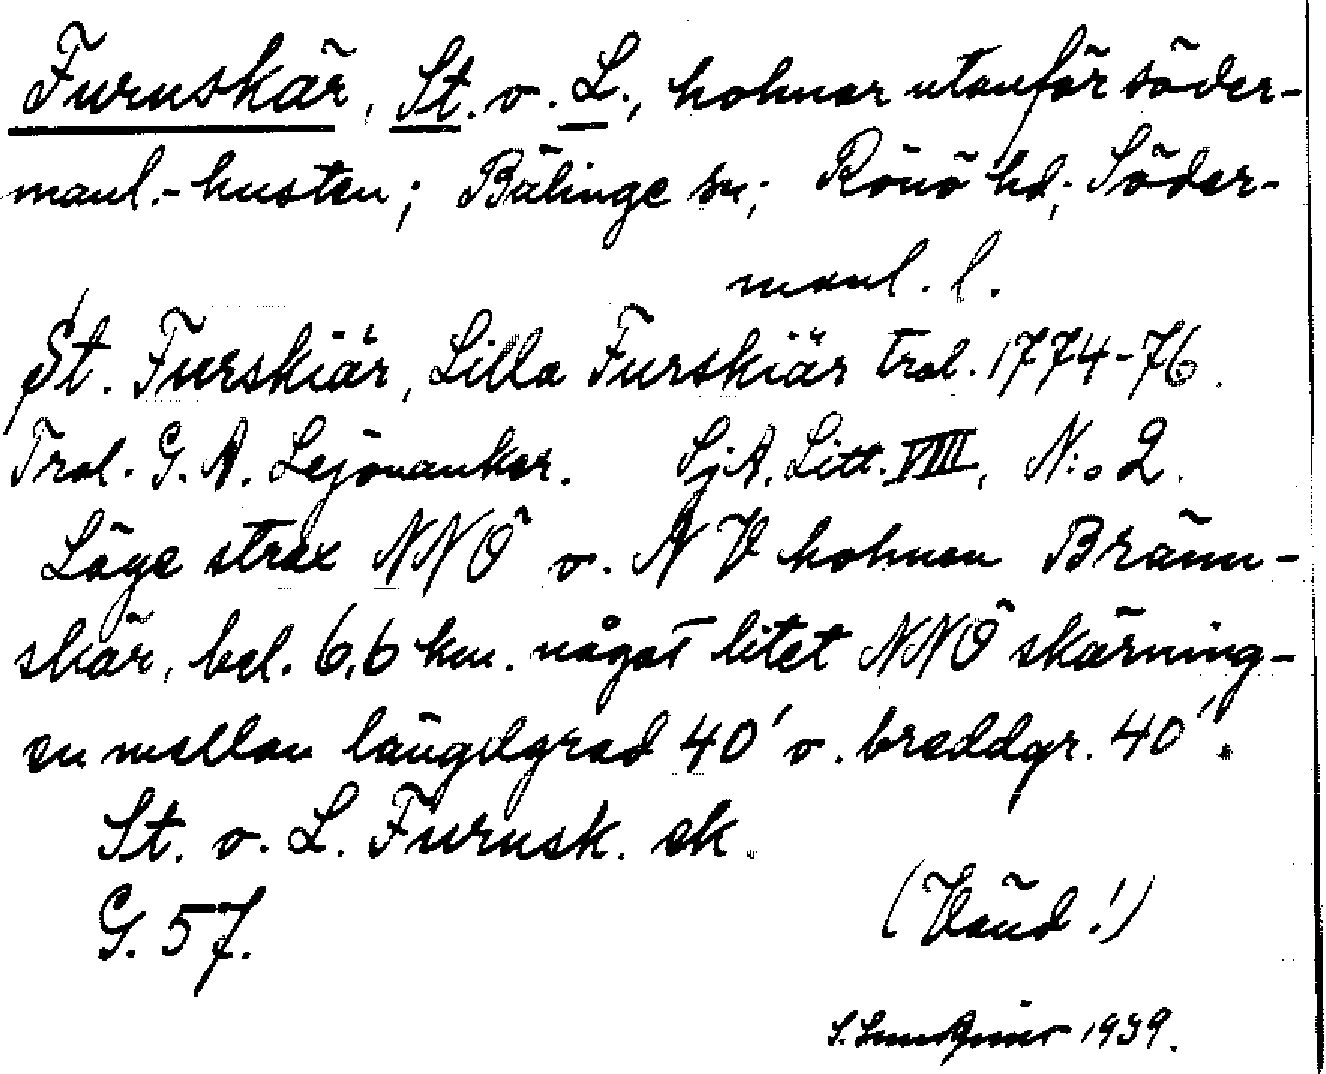 Furuskär, St. o. L., holmar utanför söder-
manl.-kusten; Bälinge sn; Rönö hd; Söder-
manl. l.
St. Furskiär, Lilla Furskiär trol. 1774-76.
Trol. G. A. Lejonankar. SjA. Litt. VIII, N:o 2.
Läge strax NNÖ o. NV holmen Bränn-
skär, bel. 6,6 km. något litet NNÖ skärning-
en mellan längdgrad 40' o. breddgr. 40'.
St. o. L. Furusk. ek.
G. 57.
(Vänd!)
1939.